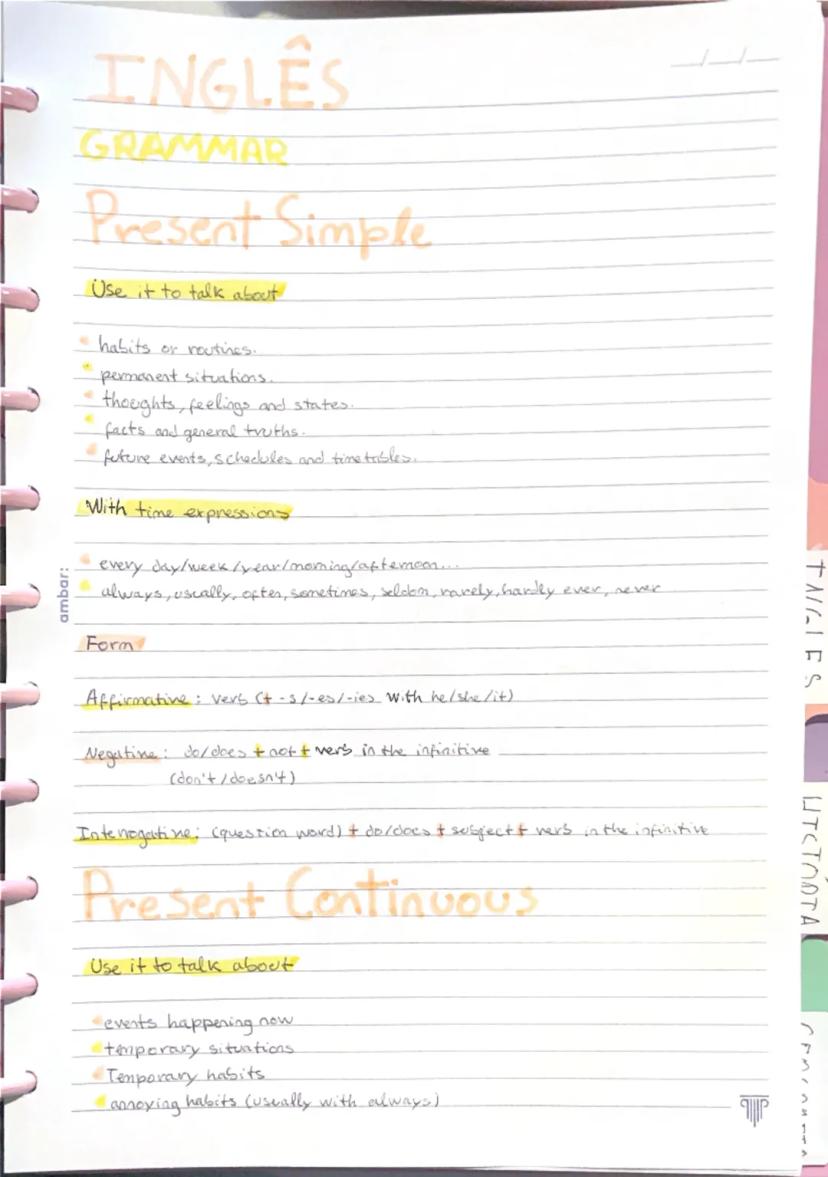 INGLÊS
GRAMMAR
Present Simple
Use it to talk about
habits or routines.
permanent situations.
thoughts, feelings and states.
facts and general truths.
future events, schedules and timetables.
With time expressions
every day/week/year/morning/afternoon...
always, usually, often, sometimes, seldom, rarely, hardly ever, never
Form
Affirmative: verb (+ -s/-es/-ies with he/she/it)
Negative: do/does + not + verb in the infinitive
(don't/doesn't)
Interrogative: (question word) + do/does + subject + verb in the infinitive
Present Continuous
Use it to talk about
events happening now
temporary situations
Temporary habits
annoying habits (usually with always)
ambar:
INGLES